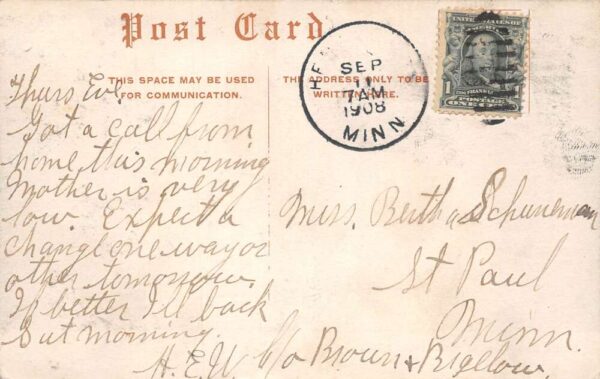 Post Card
THIS SPACE MAY BE USED
FOR COMMUNICATION.
THE ADDRESS ONLY TO BE
WRITTEN HERE.
SEP
11
7AM
1908
MINN
UNITED STATES OF
FRANKLIN
1
POSTAGE
ONE
Thurs Eve.
Got a call from
home this morning
Mother is very
low. Expect a
change one way or
other tomorrow
If better I'll back
Sat morning.
H.E.W.
Miss. Bertha Schuneman
St Paul
Minn.
c/o Brown & Bigelow.